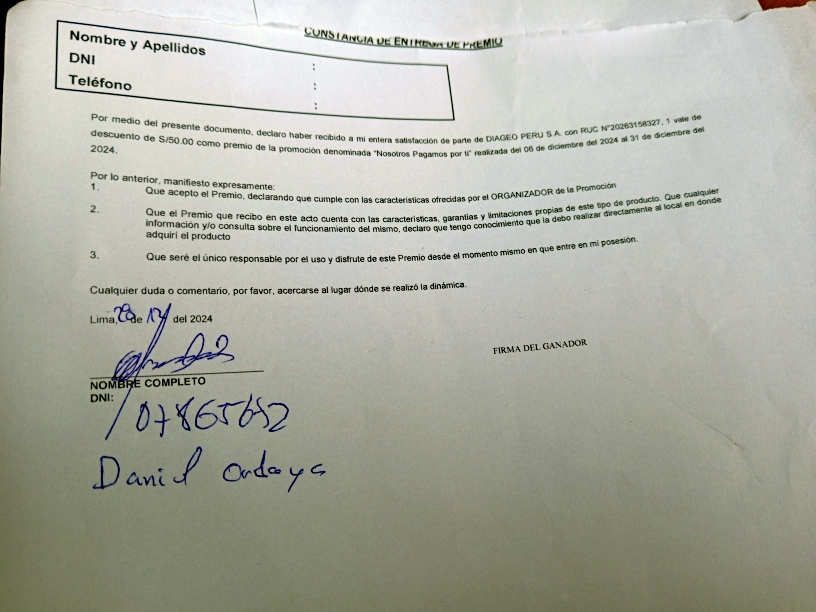 CONSTANCIA DE ENTREGA DE PREMIO
Nombre y Apellidos :
DNI :
Teléfono :
Por medio del presente documento, declaro haber recibido a mi entera satisfacción de parte de DIAGEO PERU S.A. con RUC N°20263158327, 1 vale de
descuento de S/50.00 como premio de la promoción denominada "Nosotros Pagamos por ti" realizada del 06 de diciembre del 2024 al 31 de diciembre del
2024.
Por lo anterior, manifiesto expresamente:
1. Que acepto el Premio, declarando que cumple con las características ofrecidas por el ORGANIZADOR de la Promoción
2. Que el Premio que recibo en este acto cuenta con las características, garantías y limitaciones propias de este tipo de producto. Que cualquier
información y/o consulta sobre el funcionamiento del mismo, declaro que tengo conocimiento que la debo realizar directamente al local en donde
adquirí el producto
3. Que seré el único responsable por el uso y disfrute de este Premio desde el momento mismo en que entre en mi posesión.
Cualquier duda o comentario, por favor, acercarse al lugar dónde se realizó la dinámica.
Lima, de del 2024
FIRMA DEL GANADOR
NOMBRE COMPLETO
DNI:
07865652
Daniel Ordaya